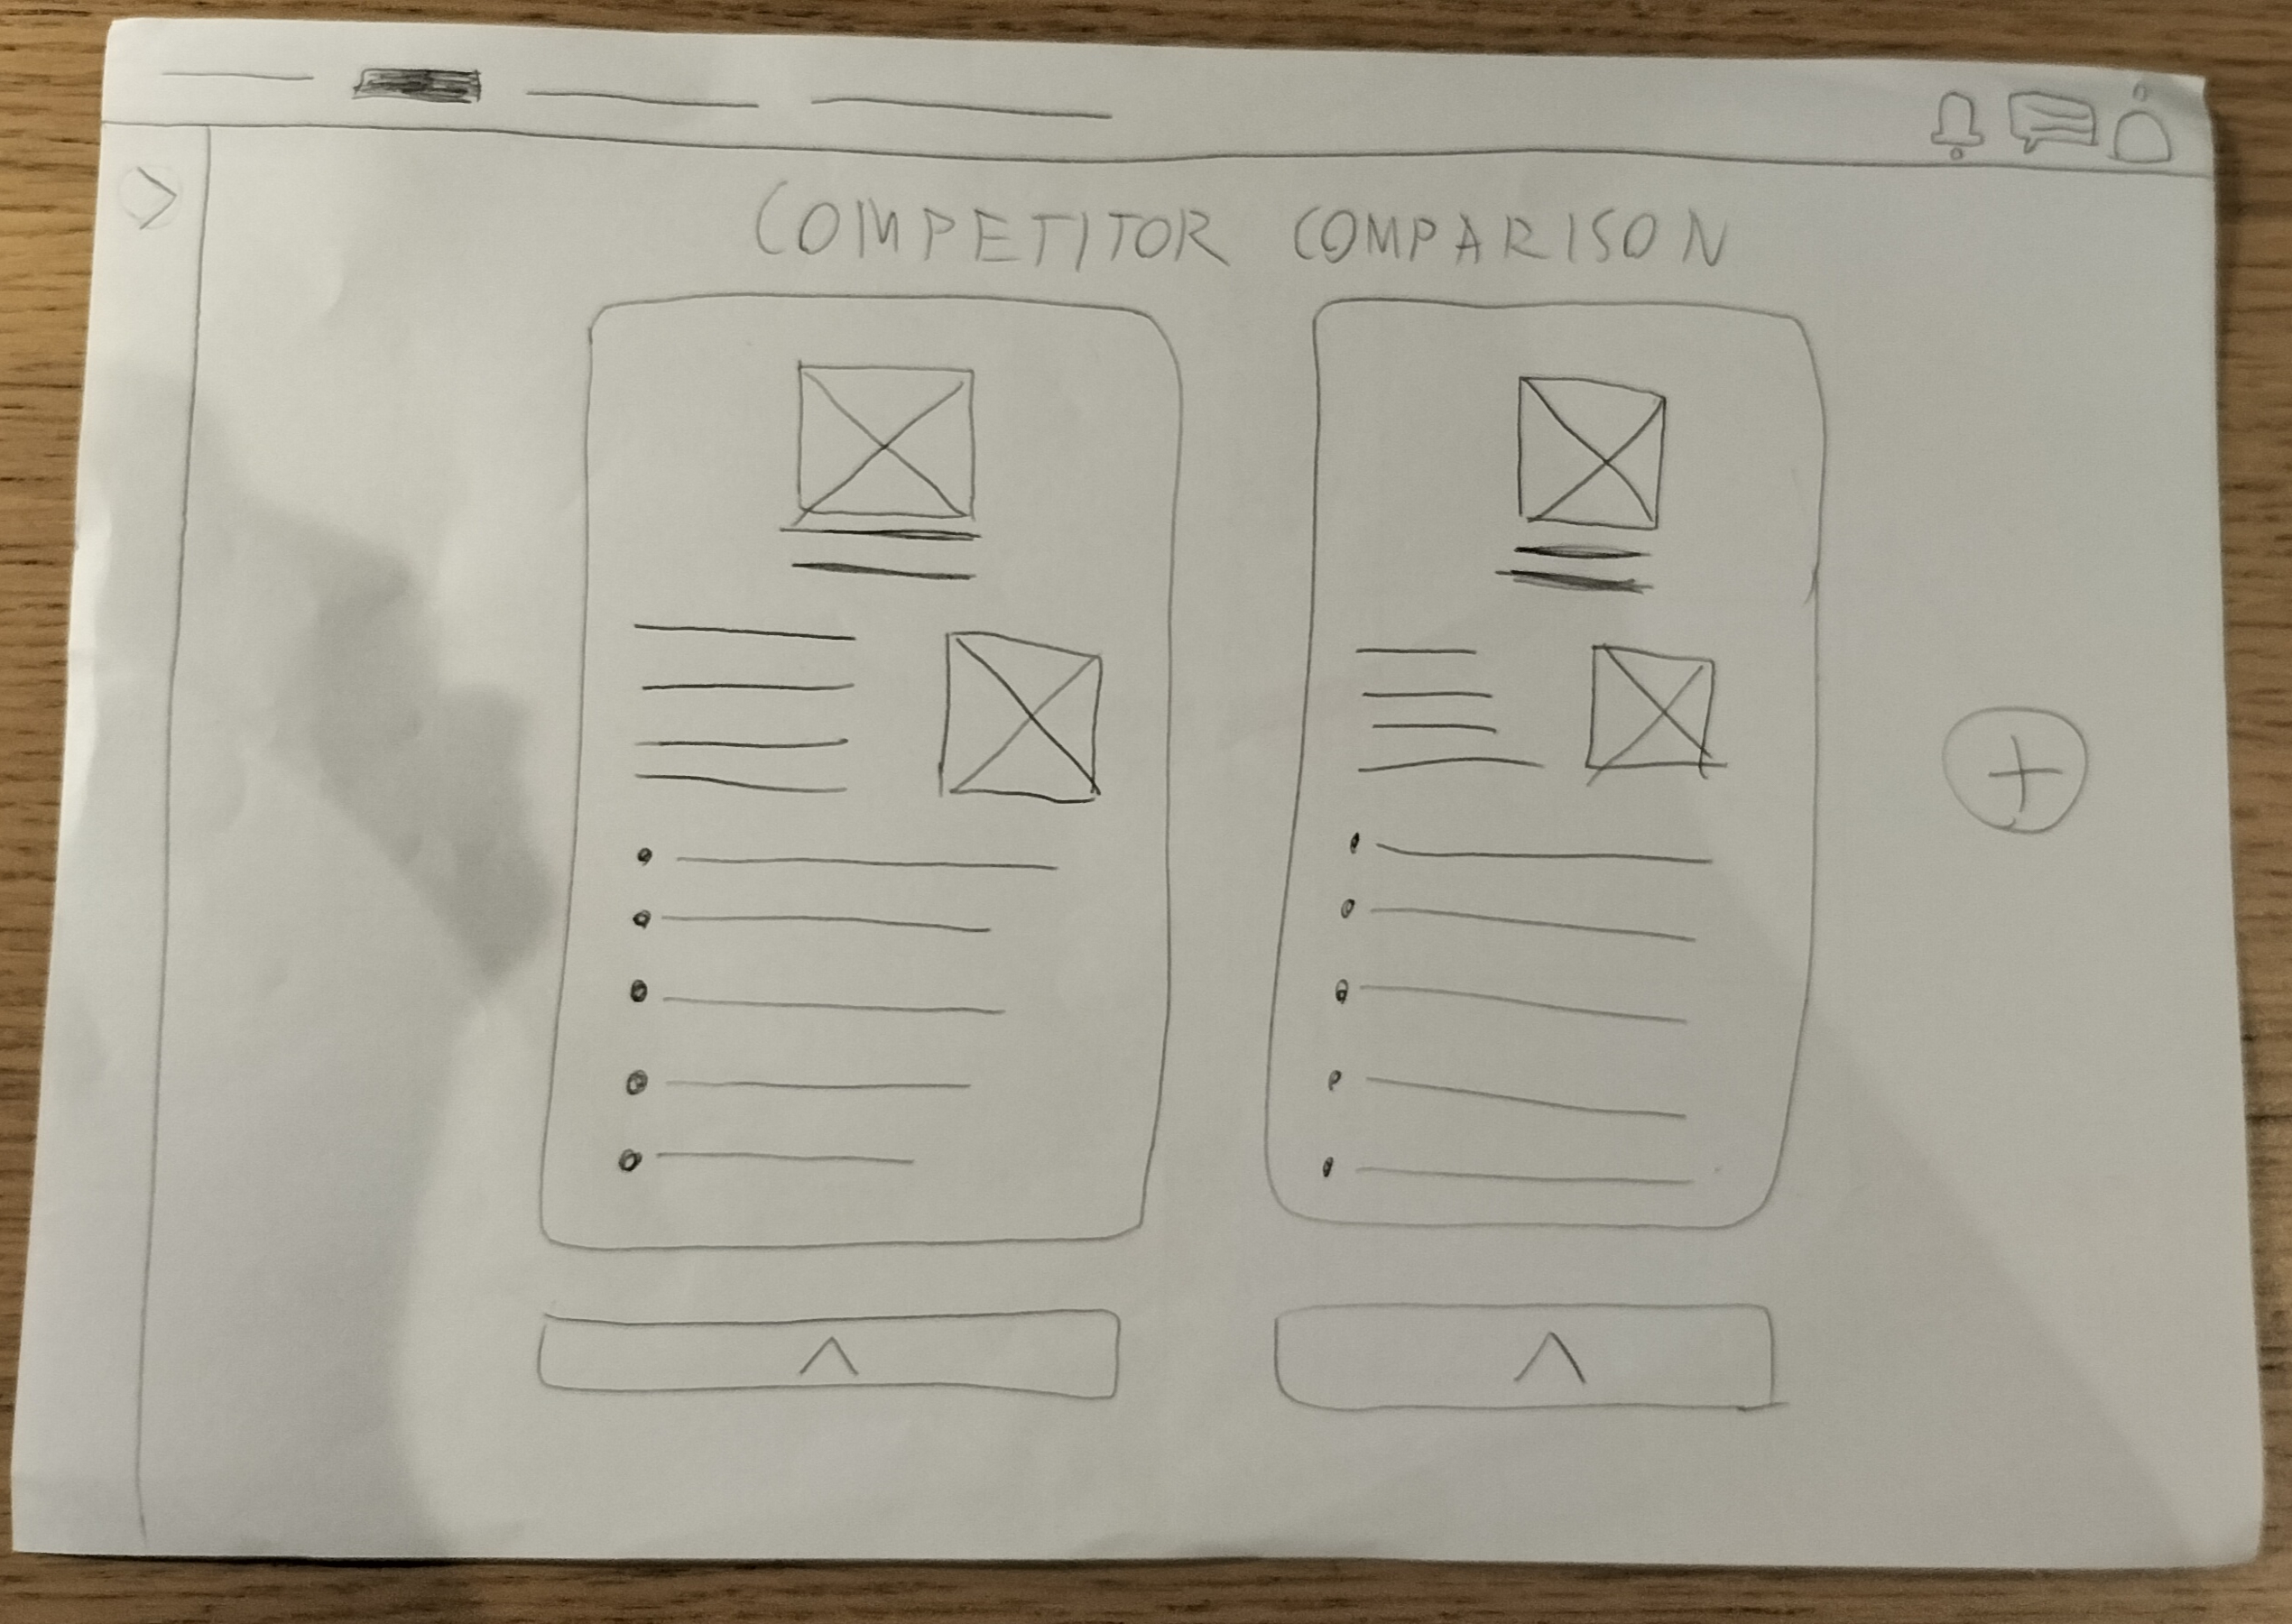 COMPETITOR COMPARISON